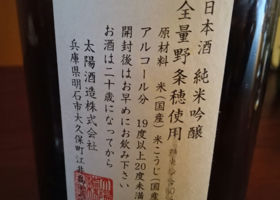 日本酒 純米吟醸
全量野条穂使用
原材料 米(国産)米こうじ(国産
アルコール分 19度以上20度未満
開封後はお早めにお飲み下さい
お酒は二十歳になってから
太陽酒造株式会社
兵庫県明石市大久保町江井